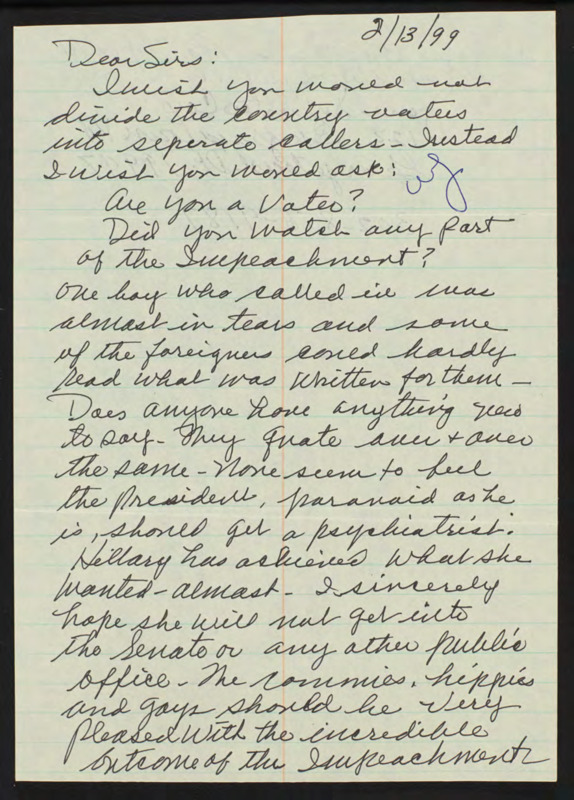 2/13/99
Dear Sirs:
I wish you would not
divide the country voters
into seperate callers - Instead
I wish you would ask:
Are you a Voter?
Did you watch any part
of the Impeachment?
One boy who called in was
almost in tears and some
of the foreigners could hardly
read what was written for them -
Does anyone have anything new
to say - They quote over + over
the same - None seem to feel
the President, paranoid as he
is, should get a psychiatrist.
Hillary has achieved what she
wanted - almost - I sincerely
hope she will not get into
the Senate or any other public
office - The commies, hippies
and gays should be very
pleased with the incredible
outcome of the Impeachment